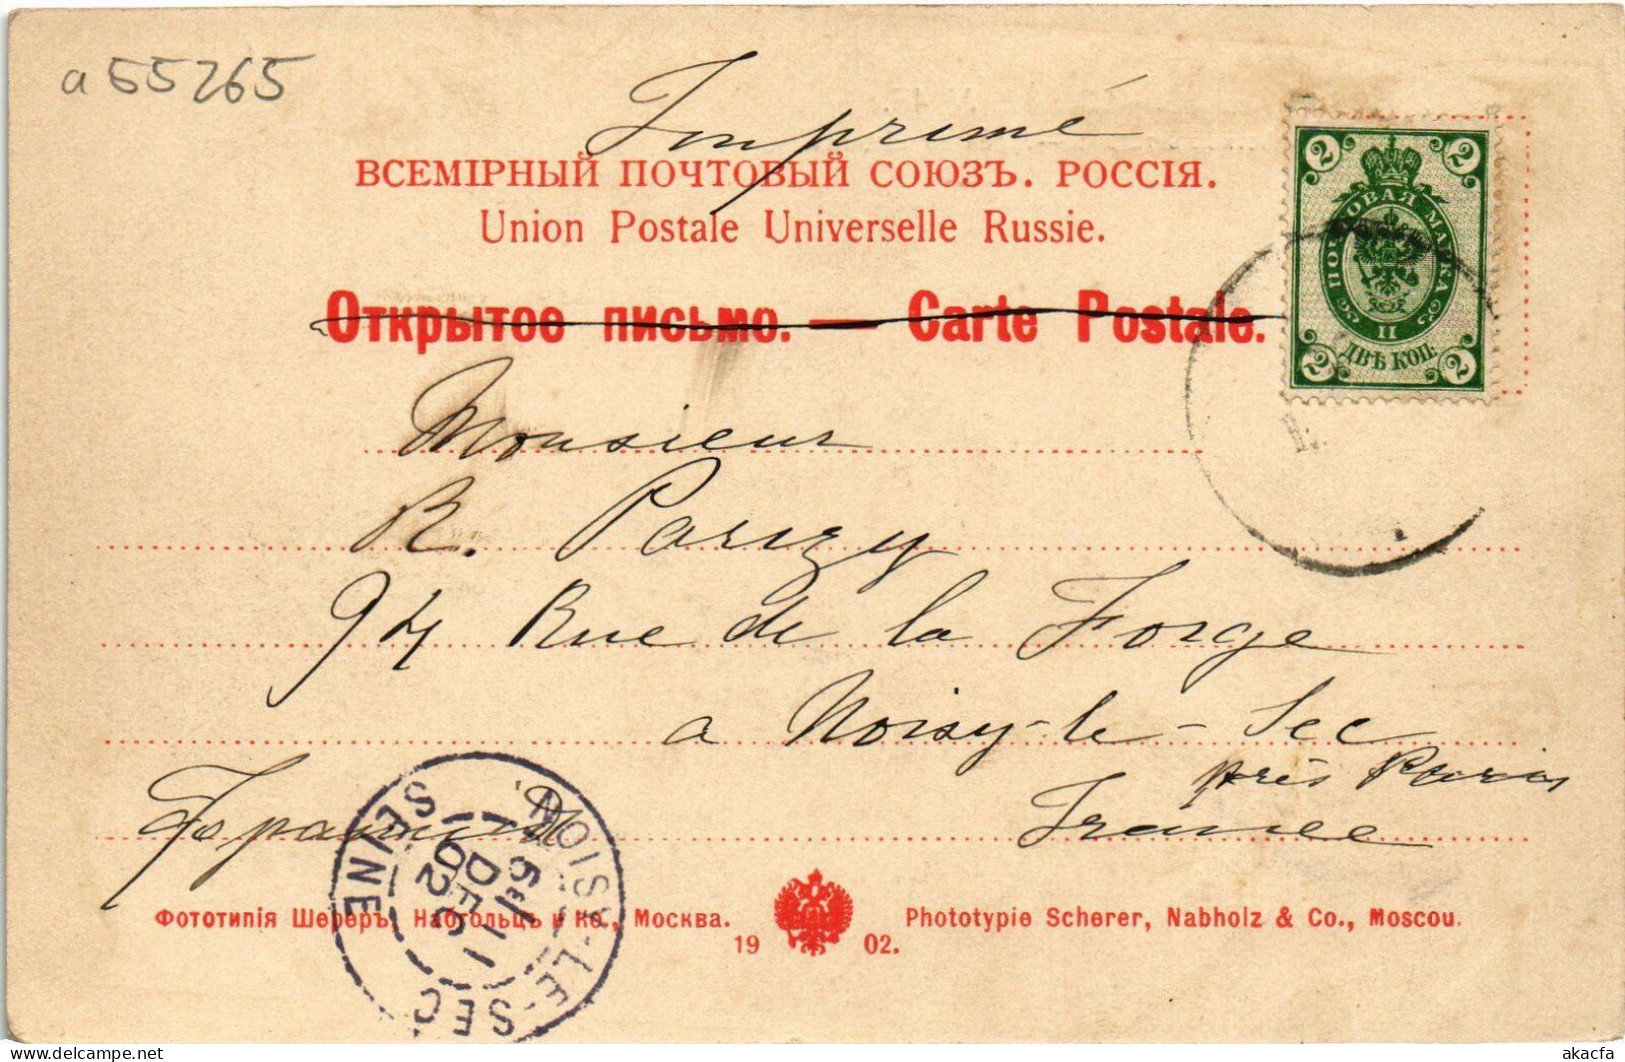 a55265
Imprimé
ВСЕМІРНЫЙ ПОЧТОВЫЙ СОЮЗЪ. РОССІЯ.
Union Postale Universelle Russie.
Открытое письмо. — Carte Postale.
2 2
ПОЧТОВАЯ МАРКА
II
ДВѢ КОП.
2 2
Monsieur
R. Parizy
94 Rue de la Forge
a Noisy-le-Sec
près Paris
France
NOISY-LE-SEC
SEINE
5E/11
DEC
02
Фототипія Шереръ, Набгольцъ и Ко., Москва.
1902.
Phototypie Scherer, Nabholz & Co., Moscou.
delcampe.net
akacfa